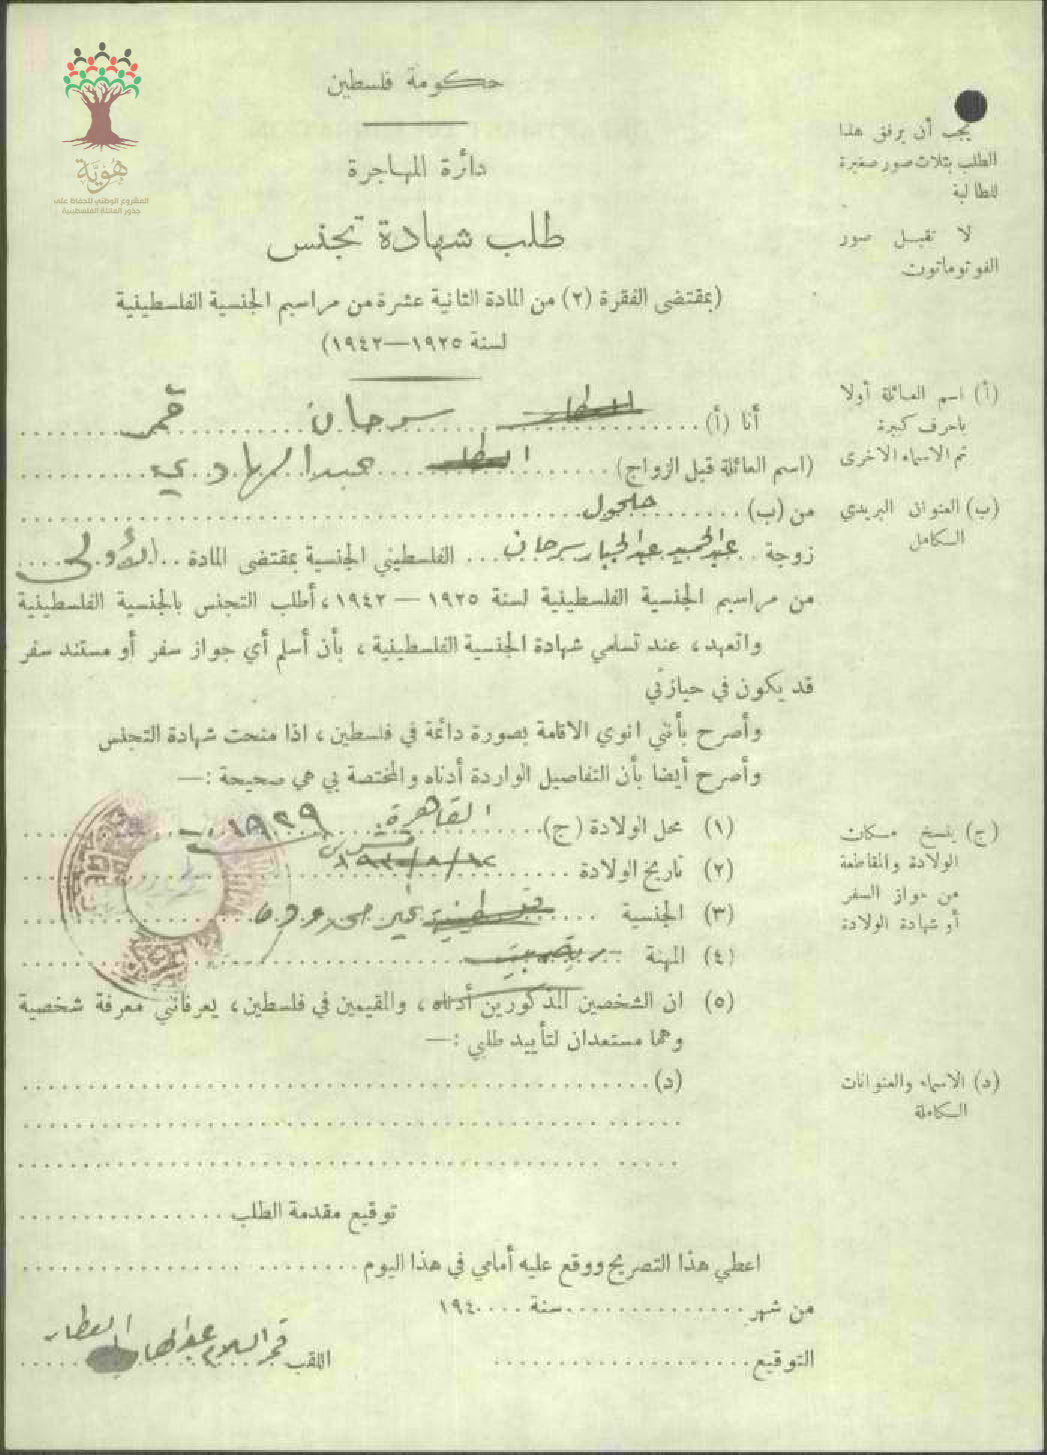 هوية
المشروع الوطني للحفاظ على
جذور العائلة الفلسطينية
حكومة فلسطين
دائرة المهاجرة
طلب شهادة تجنس
(بمقتضى الفقرة (٢) من المادة الثانية عشرة من مراسيم الجنسية الفلسطينية
لسنة ١٩٢٥—١٩٤٢)
يجب أن يرفق هذا
الطلب بثلاث صور صغيرة
للطالبة
لا تقبل صور
الفوتوماتون
أنا (أ) العطار سرحان قمر
(أ) اسم العائلة أولا
باحرف كبيرة
ثم الاسماء الاخرى
(اسم العائلة قبل الزواج) العطار عبد الهادي
من (ب) حلحول
(ب) العنوان البريدي
الكامل
زوجة عبد الحميد عبد الجبار سرحان الفلسطيني الجنسية بمقتضى المادة الأولى
من مراسيم الجنسية الفلسطينية لسنة ١٩٢٥ — ١٩٤٢، أطلب التجنس بالجنسية الفلسطينية
واتعهد، عند تسلمي شهادة الجنسية الفلسطينية، بأن أسلم أي جواز سفر أو مستند سفر
قد يكون في حيازتي
وأصرح بأنني انوي الاقامة بصورة دائمة في فلسطين، اذا منحت شهادة التجنس
وأصرح أيضا بأن التفاصيل الواردة أدناه والمختصة بي هي صحيحة :—
(١) محل الولادة (ج) القاهرة ١٩٢٩
(٢) تاريخ الولادة
(٣) الجنسية فلسطينية غير معروفة
(٤) المهنة ربة بيت
(ج) ينسخ مكان
الولادة والمقاطعة
من جواز السفر
أو شهادة الولادة
(٥) ان الشخصين المذكورين أدناه، والمقيمين في فلسطين، يعرفانني معرفة شخصية
وهما مستعدان لتأييد طلبي :—
(د)
(د) الاسماء والعنوانات
الكاملة
توقيع مقدمة الطلب
اعطي هذا التصريح ووقع عليه أمامي في هذا اليوم
من شهر سنة ١٩٤٠
التوقيع
اللقب قمر السلام عبد الهادي العطار